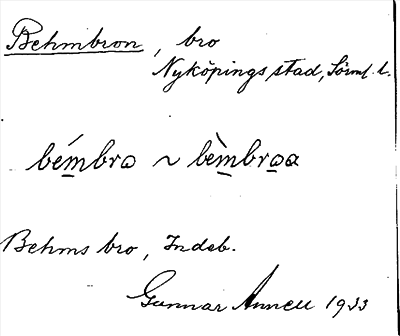 Behmbron, bro
Nyköpings stad, Sörml. l.
bémbro ~ bèmbroa
Behms bro, Indeb.
Gunnar Annell 1933